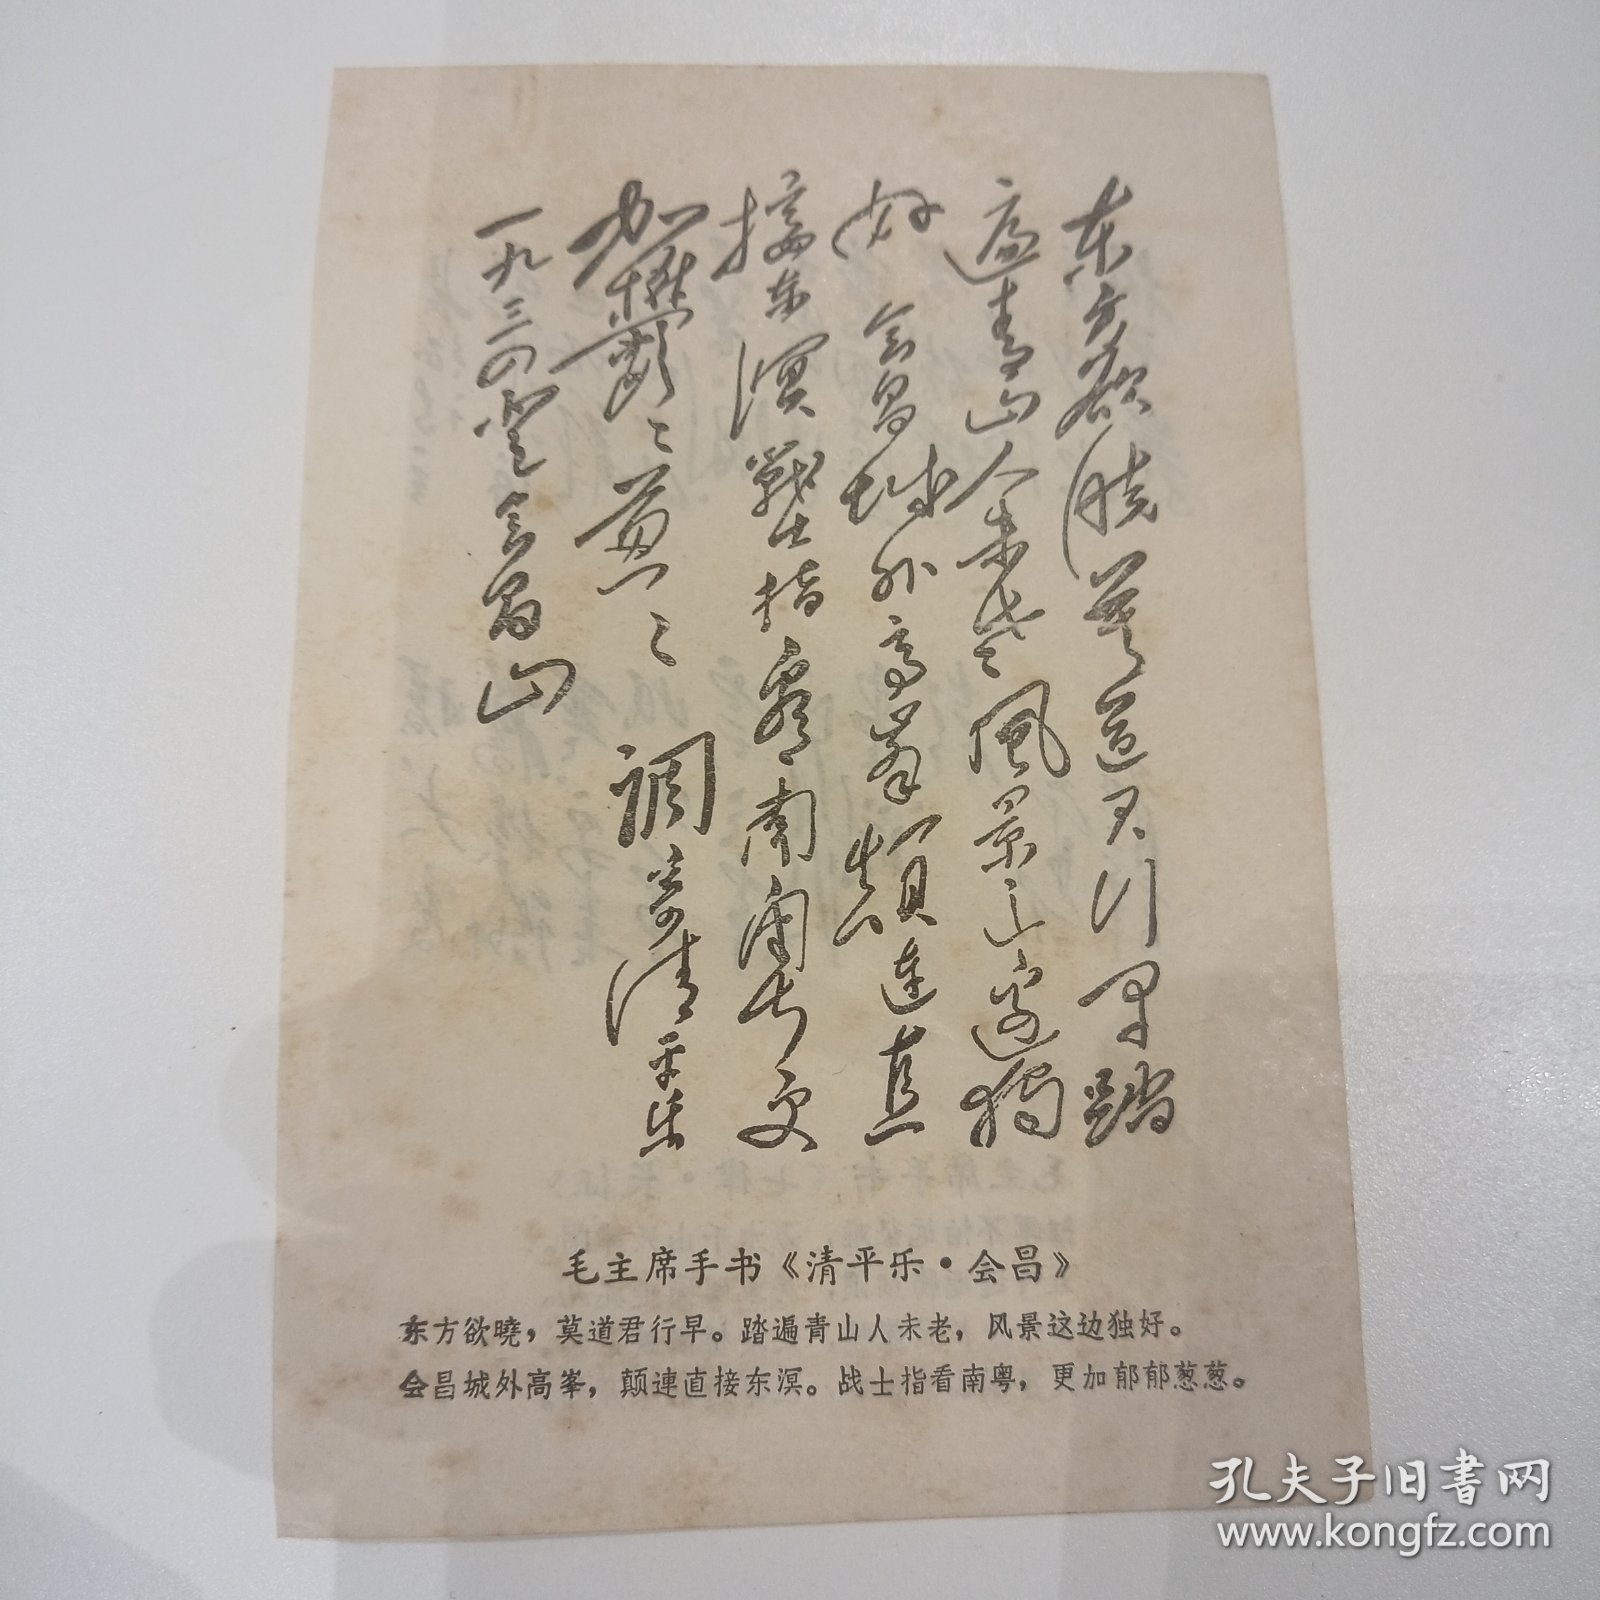 东方欲晓莫道君行早踏
遍青山人未老风景这边独
好 会昌城外高峰颠连直
接东溟战士指看南粤更
加郁〻葱〻 调寄清平乐
一九三四登会昌山
毛主席手书《清平乐·会昌》
东方欲曉，莫道君行早。踏遍青山人未老，风景这边独好。
会昌城外高峯，颠連直接东溟。战士指看南粤，更加郁郁葱葱。
孔夫子旧书网
www.kongfz.com